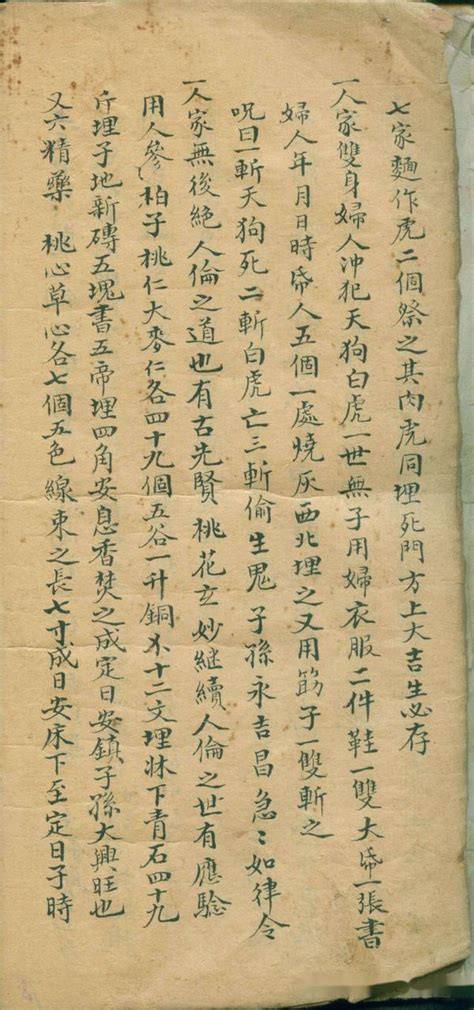 七家麵作虎二個祭之其肉虎同埋死門方上大吉生必存
一人家雙身婦人沖犯天狗白虎一世無子用婦衣服二件鞋一雙大帋一張書
婦人年月日時帋人五個一處燒灰西北埋之又用筯子一雙斬之
呪曰一斬天狗死二斬白虎亡三斬偷生鬼子孫永吉昌急〻如律令
一人家無後絕人倫之道也有古先賢桃花玄妙繼續人倫之世有應驗
用人參柏子桃仁大麥仁各四十九個五谷一升銅不十二文埋牀下青石四十九
斤埋子地新磚五塊書五帝埋四角安息香焚之成定日安鎮子孫大興旺也
又六精藥 桃心草心各七個五色線束之長七寸成日安床下至定日子時